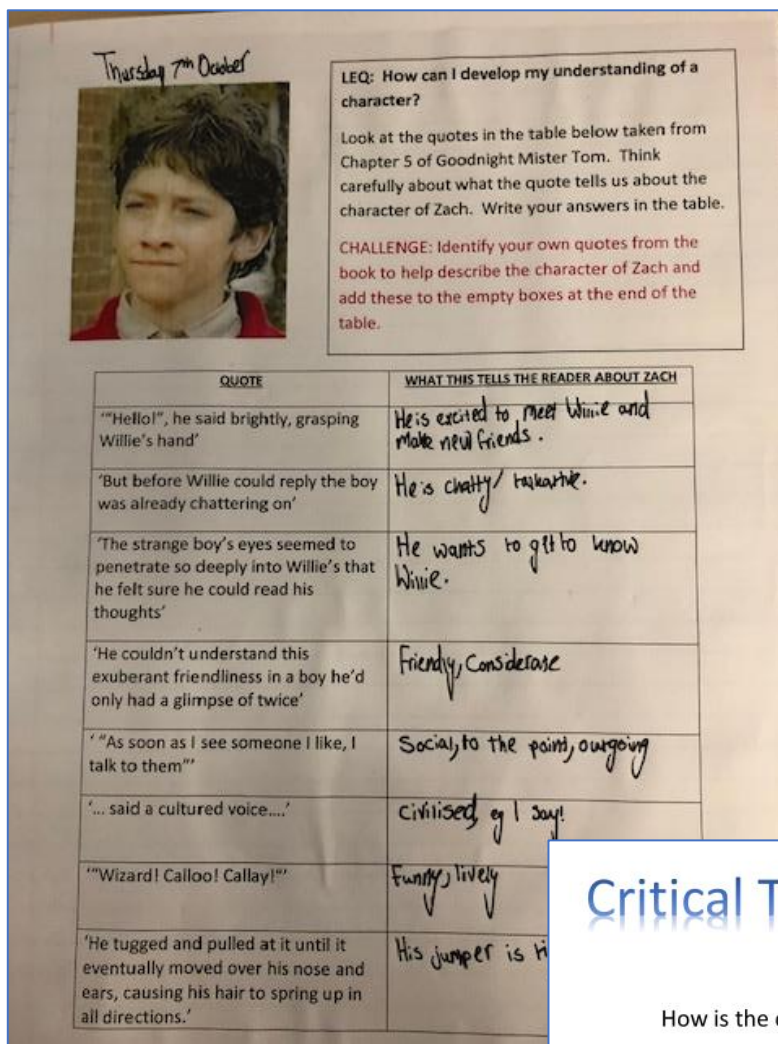 Thursday 7th October
LEQ: How can I develop my understanding of a
character?
Look at the quotes in the table below taken from
Chapter 5 of Goodnight Mister Tom. Think
carefully about what the quote tells us about the
character of Zach. Write your answers in the table.
CHALLENGE: Identify your own quotes from the
book to help describe the character of Zach and
add these to the empty boxes at the end of the
table.
QUOTE
WHAT THIS TELLS THE READER ABOUT ZACH
'"Hello!", he said brightly, grasping
Willie's hand'
He is excited to meet Willie and
make new friends.
'But before Willie could reply the boy
was already chattering on'
He is chatty/
'The strange boy's eyes seemed to
penetrate so deeply into Willie's that
he felt sure he could read his
thoughts'
He wants to get to know
Willie.
'He couldn't understand this
exuberant friendliness in a boy he'd
only had a glimpse of twice'
Friendly, Considerate
' "As soon as I see someone I like, I
talk to them"'
Social, to the point, outgoing
'... said a cultured voice....'
Civilised, eg I say!
'"Wizard! Calloo! Callay!"'
Funny, lively
'He tugged and pulled at it until it
eventually moved over his nose and
ears, causing his hair to spring up in
all directions.'
His jumper is
Critical T
How is the